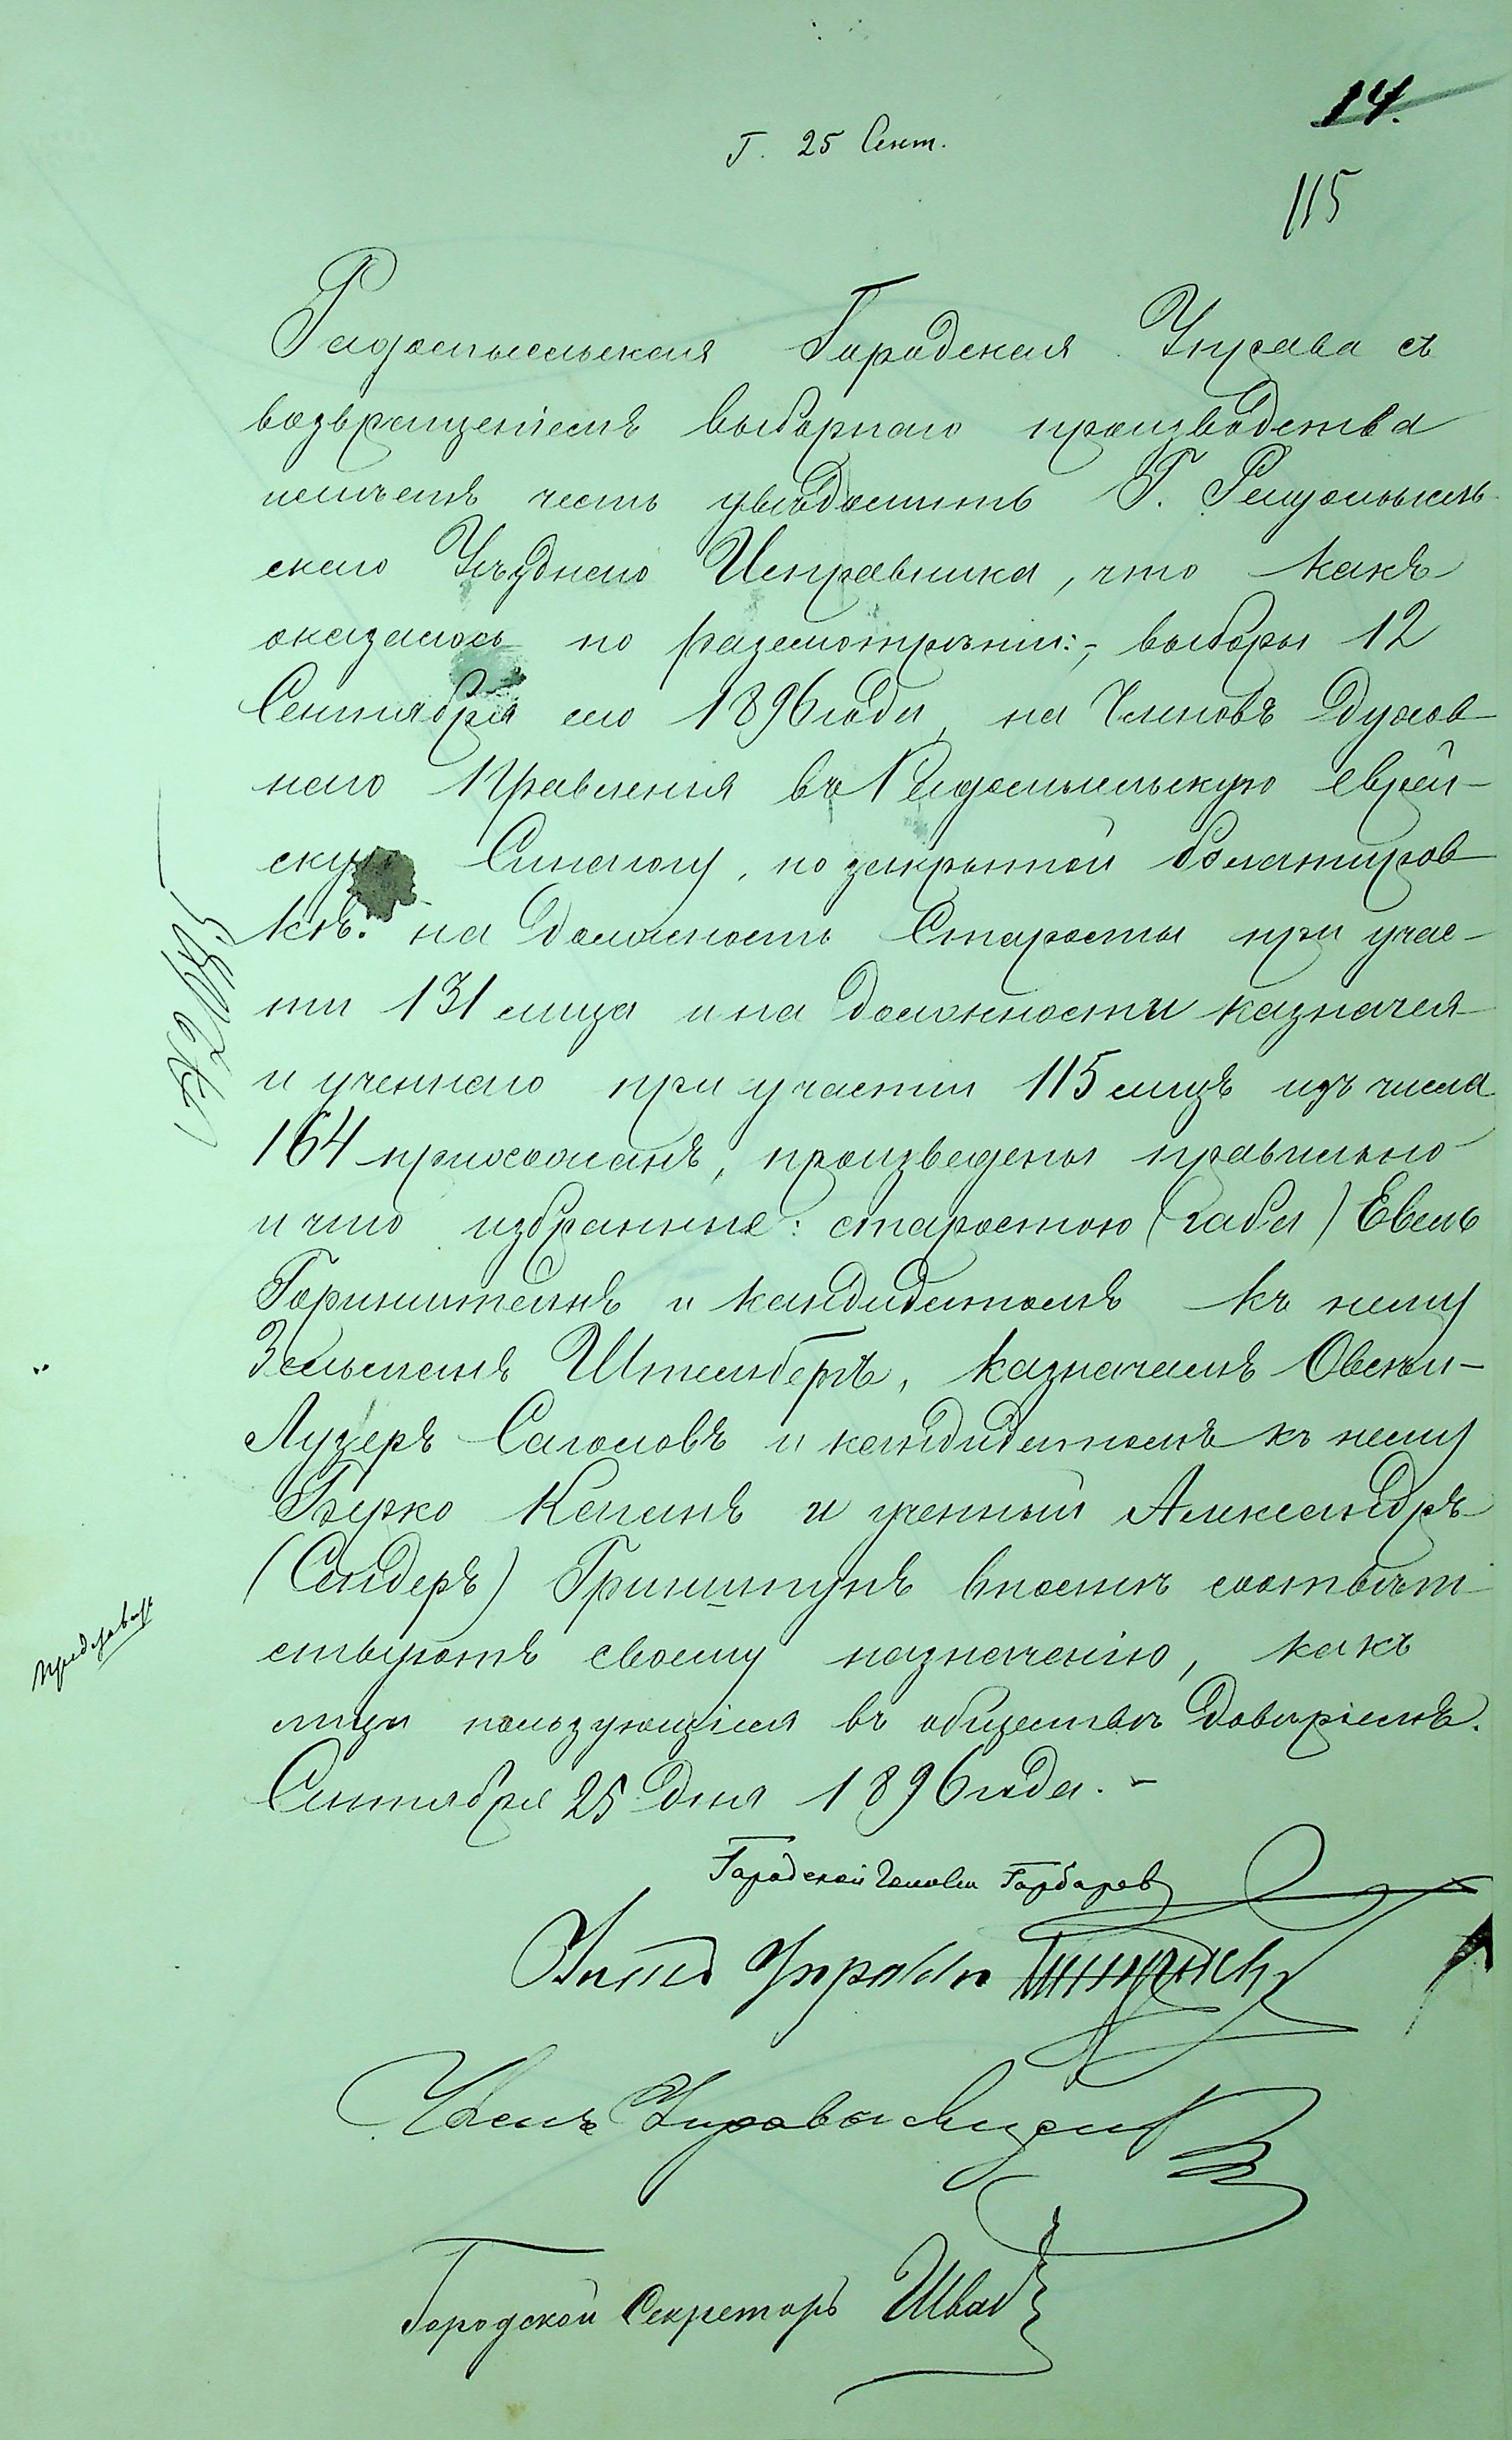 14.
Г. 25 Сент.
115
Радомысльская Городская Управа съ
возвращеніемъ выборнаго производства
имѣетъ честь увѣдомить Г. Радомысль-
скаго Уѣзднаго Исправника, что какъ
оказалось по разсмотрѣніи:, выборы 12
Сентября сего 1896 года, на Членовъ Духов-
наго Правленія въ Радомысльскую Еврей-
скую Синагогу, по закрытой балатиров-
кѣ: на должность Старосты при учас-
тіи 131 лица и на должности казначея
и ученнаго при участіи 115 лицъ изъ числа
164 прихожанъ, произведены правильно
и что избранные: старостою (габа) Евель
Горинштейнъ и кандидатомъ къ нему
Зельманъ Штейнбергъ, казначеемъ Овсей-
Лузеръ Сагаловъ и кандидатомъ къ нему
Берко Капанъ и ученный Александръ
(Сендеръ) Гриншпунъ вполнѣ соотвѣт-
ствуютъ своему назначенію, какъ
лица пользующіяся въ обществѣ довѣріемъ.
Сентября 25 дня 1896 года. -
Городской Голова Горбарев
Члены Управы
Членъ Управы
Городской Секретарь Шваб